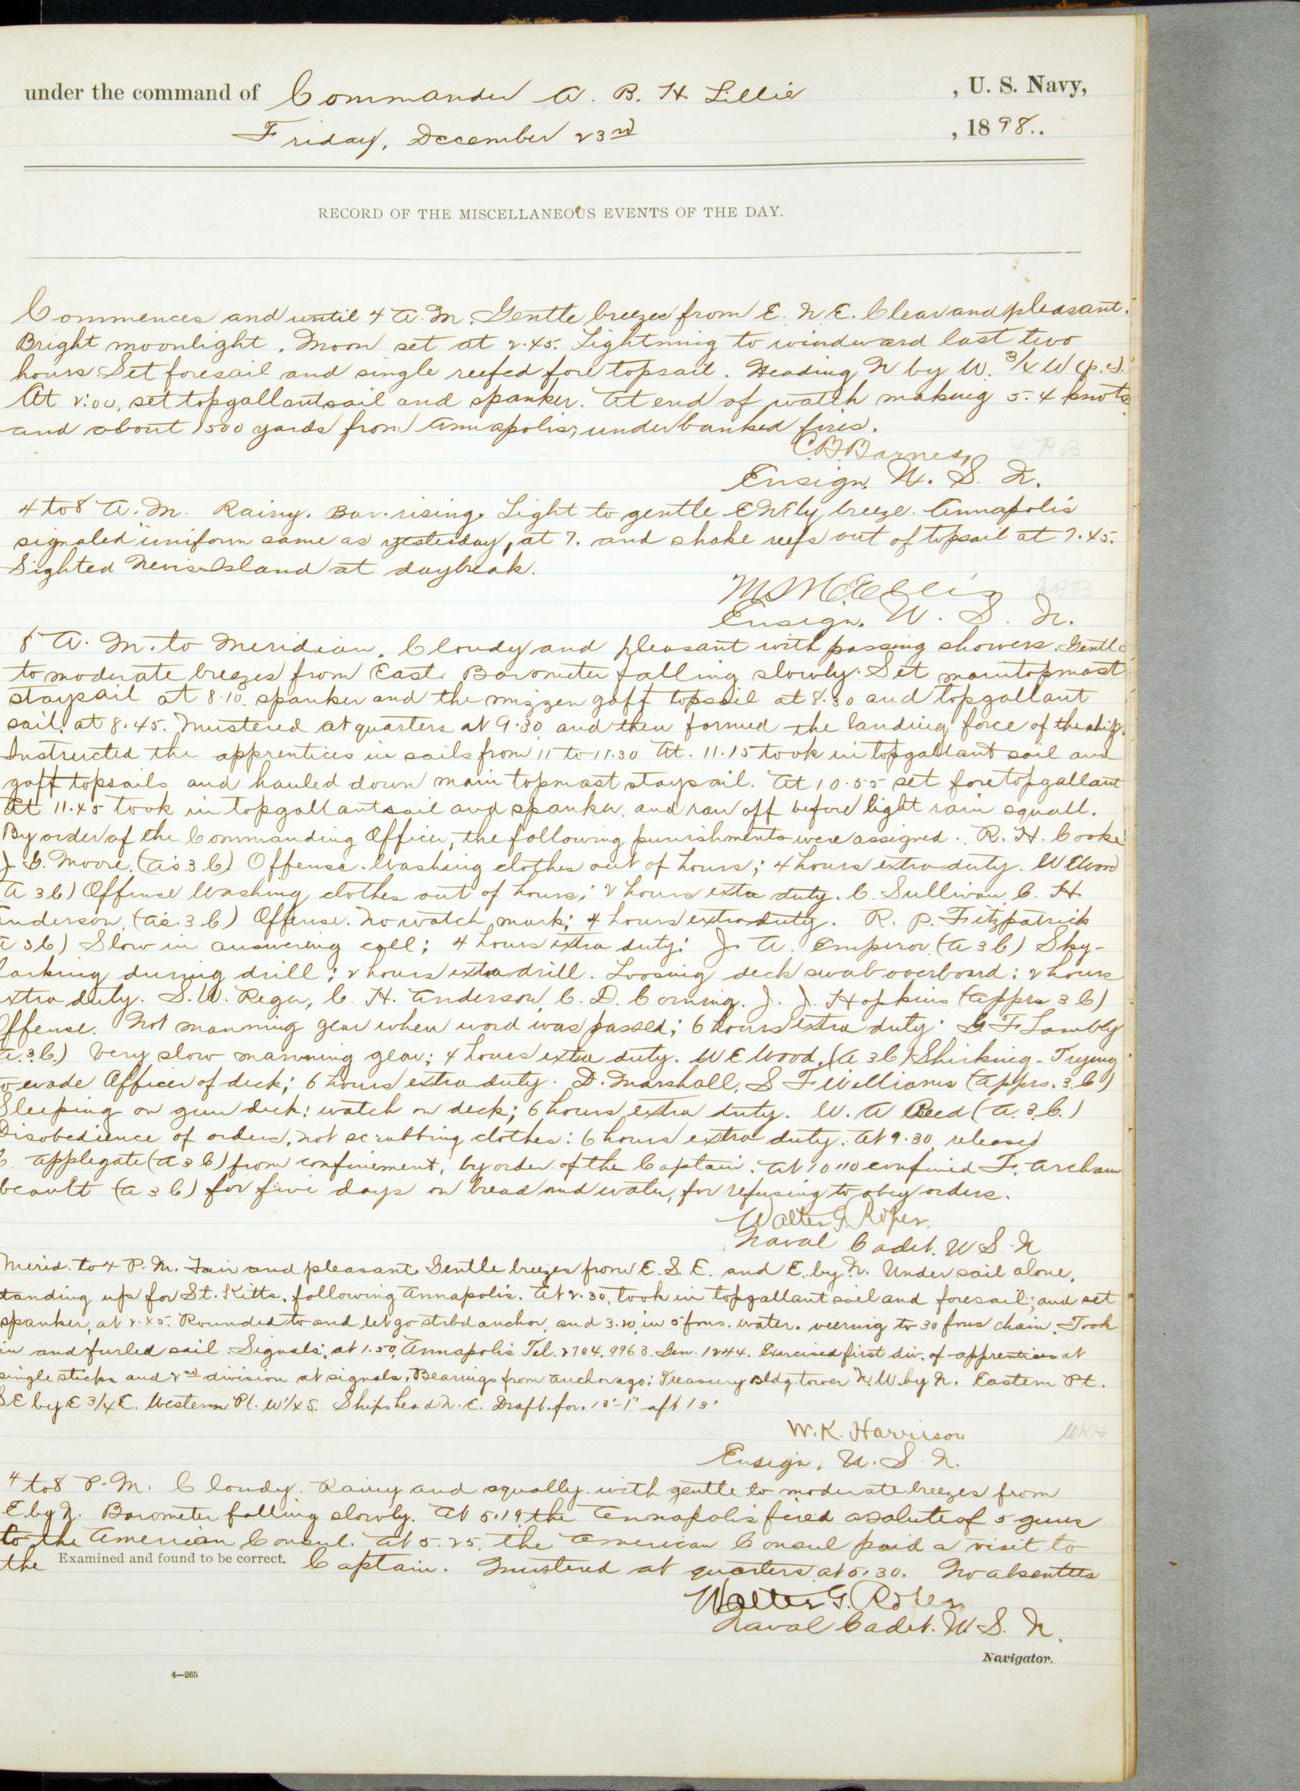 under the command of Commander A. B. H. Lillie , U. S. Navy,
Friday, December 23rd , 1898..
RECORD OF THE MISCELLANEOUS EVENTS OF THE DAY.
Commences and until 4 A. M. Gentle breezes from E. N. E. Clear and pleasant.
Bright moonlight. Moon set at 2.45. Lightning to windward last two
hours. Set foresail and single reefed fore topsail. Heading N by W. 3/4 W (p.c).
At 2:00, set topgallantsail and spanker. At end of watch making 5.4 knots
and about 1500 yards from Annapolis, under banked fires.
C. B. Barnes,
Ensign. U. S. N.
4 to 8 A. M. Rainy. Bar. rising. Light to gentle ENEly breeze. Annapolis
signaled "uniform same as yesterday, at 7. and shake reefs out of topsail at 7.45.
Sighted Nevis Island at daybreak.
Ensign. U. S. N.
8 A. M. to Meridian. Cloudy and pleasant with passing showers. Gentle
to moderate breezes from East. Barometer falling slowly. Set maintopmast
staysail at 8.10. spanker and the mizzen gaff topsail at 8.30 and topgallant
sail at 8.45. Mustered at quarters at 9.30 and then formed the landing force of the ship.
Instructed the apprentices in sails from 11 to 11.30 At. 11.15 took in topgallant sail and
gaff topsails and hauled down main topmast staysail. At 10.55 set foretopgallant
At 11.45 took in topgallantsail and spanker. and ran off before light rain squall.
By order of the Commanding Officer, the following punishments were assigned. R. H. Cooke
J. C. Moore, (as 3 C) Offense. Washing clothes out of hours; 4 hours extra duty. W E Wood
(A 3 C) Offense Washing clothes out of hours; 2 hours extra duty. C. Sullivan, C. H.
Anderson, (as. 3. C) Offense. No watch mark; 4 hours extra duty. R. P. Fitzpatrick
(A 3 C) Slow in answering call; 4 hours extra duty. J. A. Emperor (A 3 C) Sky-
larking during drill; 2 hours extra drill. Loosing deck swab overboard; 2 hours
extra duty. S. W. Rega, C. H. Anderson C. D. Corning. J. J. Hopkins (apprs 3 C)
Offense. Not manning gear when word was passed; 6 hours extra duty. G F Lambly
(A. 3. C.) Very slow manning gear; 4 hours extra duty. W E Wood, (A 3 C) Shirking - Trying
to evade Officer of deck; 6 hours extra duty. D. Marshall, S F Williams (apprs. 3. C)
Sleeping on gun deck; watch on deck; 6 hours extra duty. W. A Reed (A. 3. C.)
Disobedience of orders, not scrubbing clothes: 6 hours extra duty. At 9.30, released
C. Applegate (A 3 C) from confinement, by order of the Captain. At 10 10 confined F. Archam
beault (A 3 C) for five days on bread and water, for refusing to obey orders.
Walter G. Roper.
Naval Cadet. U S. N
Merid. to 4 P. M. Fair and pleasant. Gentle breezes from E. S. E. and E. by N. Under sail alone,
standing up for St. Kitts, following Annapolis. At 2.30, took in topgallant sail and foresail; and set
spanker, at 2.45. Rounded to and let go stbd anchor, and 3.20, in 5 fms. water. veering to 30 fms chain. Took
in and furled sail Signals: at 1.50, Annapolis Tel. 2704. 9963. Gen. 1244. Exercised first div. of apprentices at
single sticks and 2nd division at signals. Bearings from anchorage: Treasury Bldg. tower N. W. by N. Eastern Pt.
SE by E 3/4 E. Western Pt. W 1/4 S. Ships head N. E. Draft. for. 12'-1" aft 13'
W. K. Harrison
Ensign, U. S. N.
4 to 8 P. M. Cloudy. Rainy and squally with gentle to moderate breezes from
E. by N. Barometer falling slowly. At 5.19 the Annapolis fired a salute of 5 guns
to the American Consul. At 5.25. the American Consul paid a visit to
the Captain. Mustered at quarters at 5.30. No absentees
Examined and found to be correct.
Walter G. Roper
Naval Cadet. U. S. N.
Navigator.
4—265